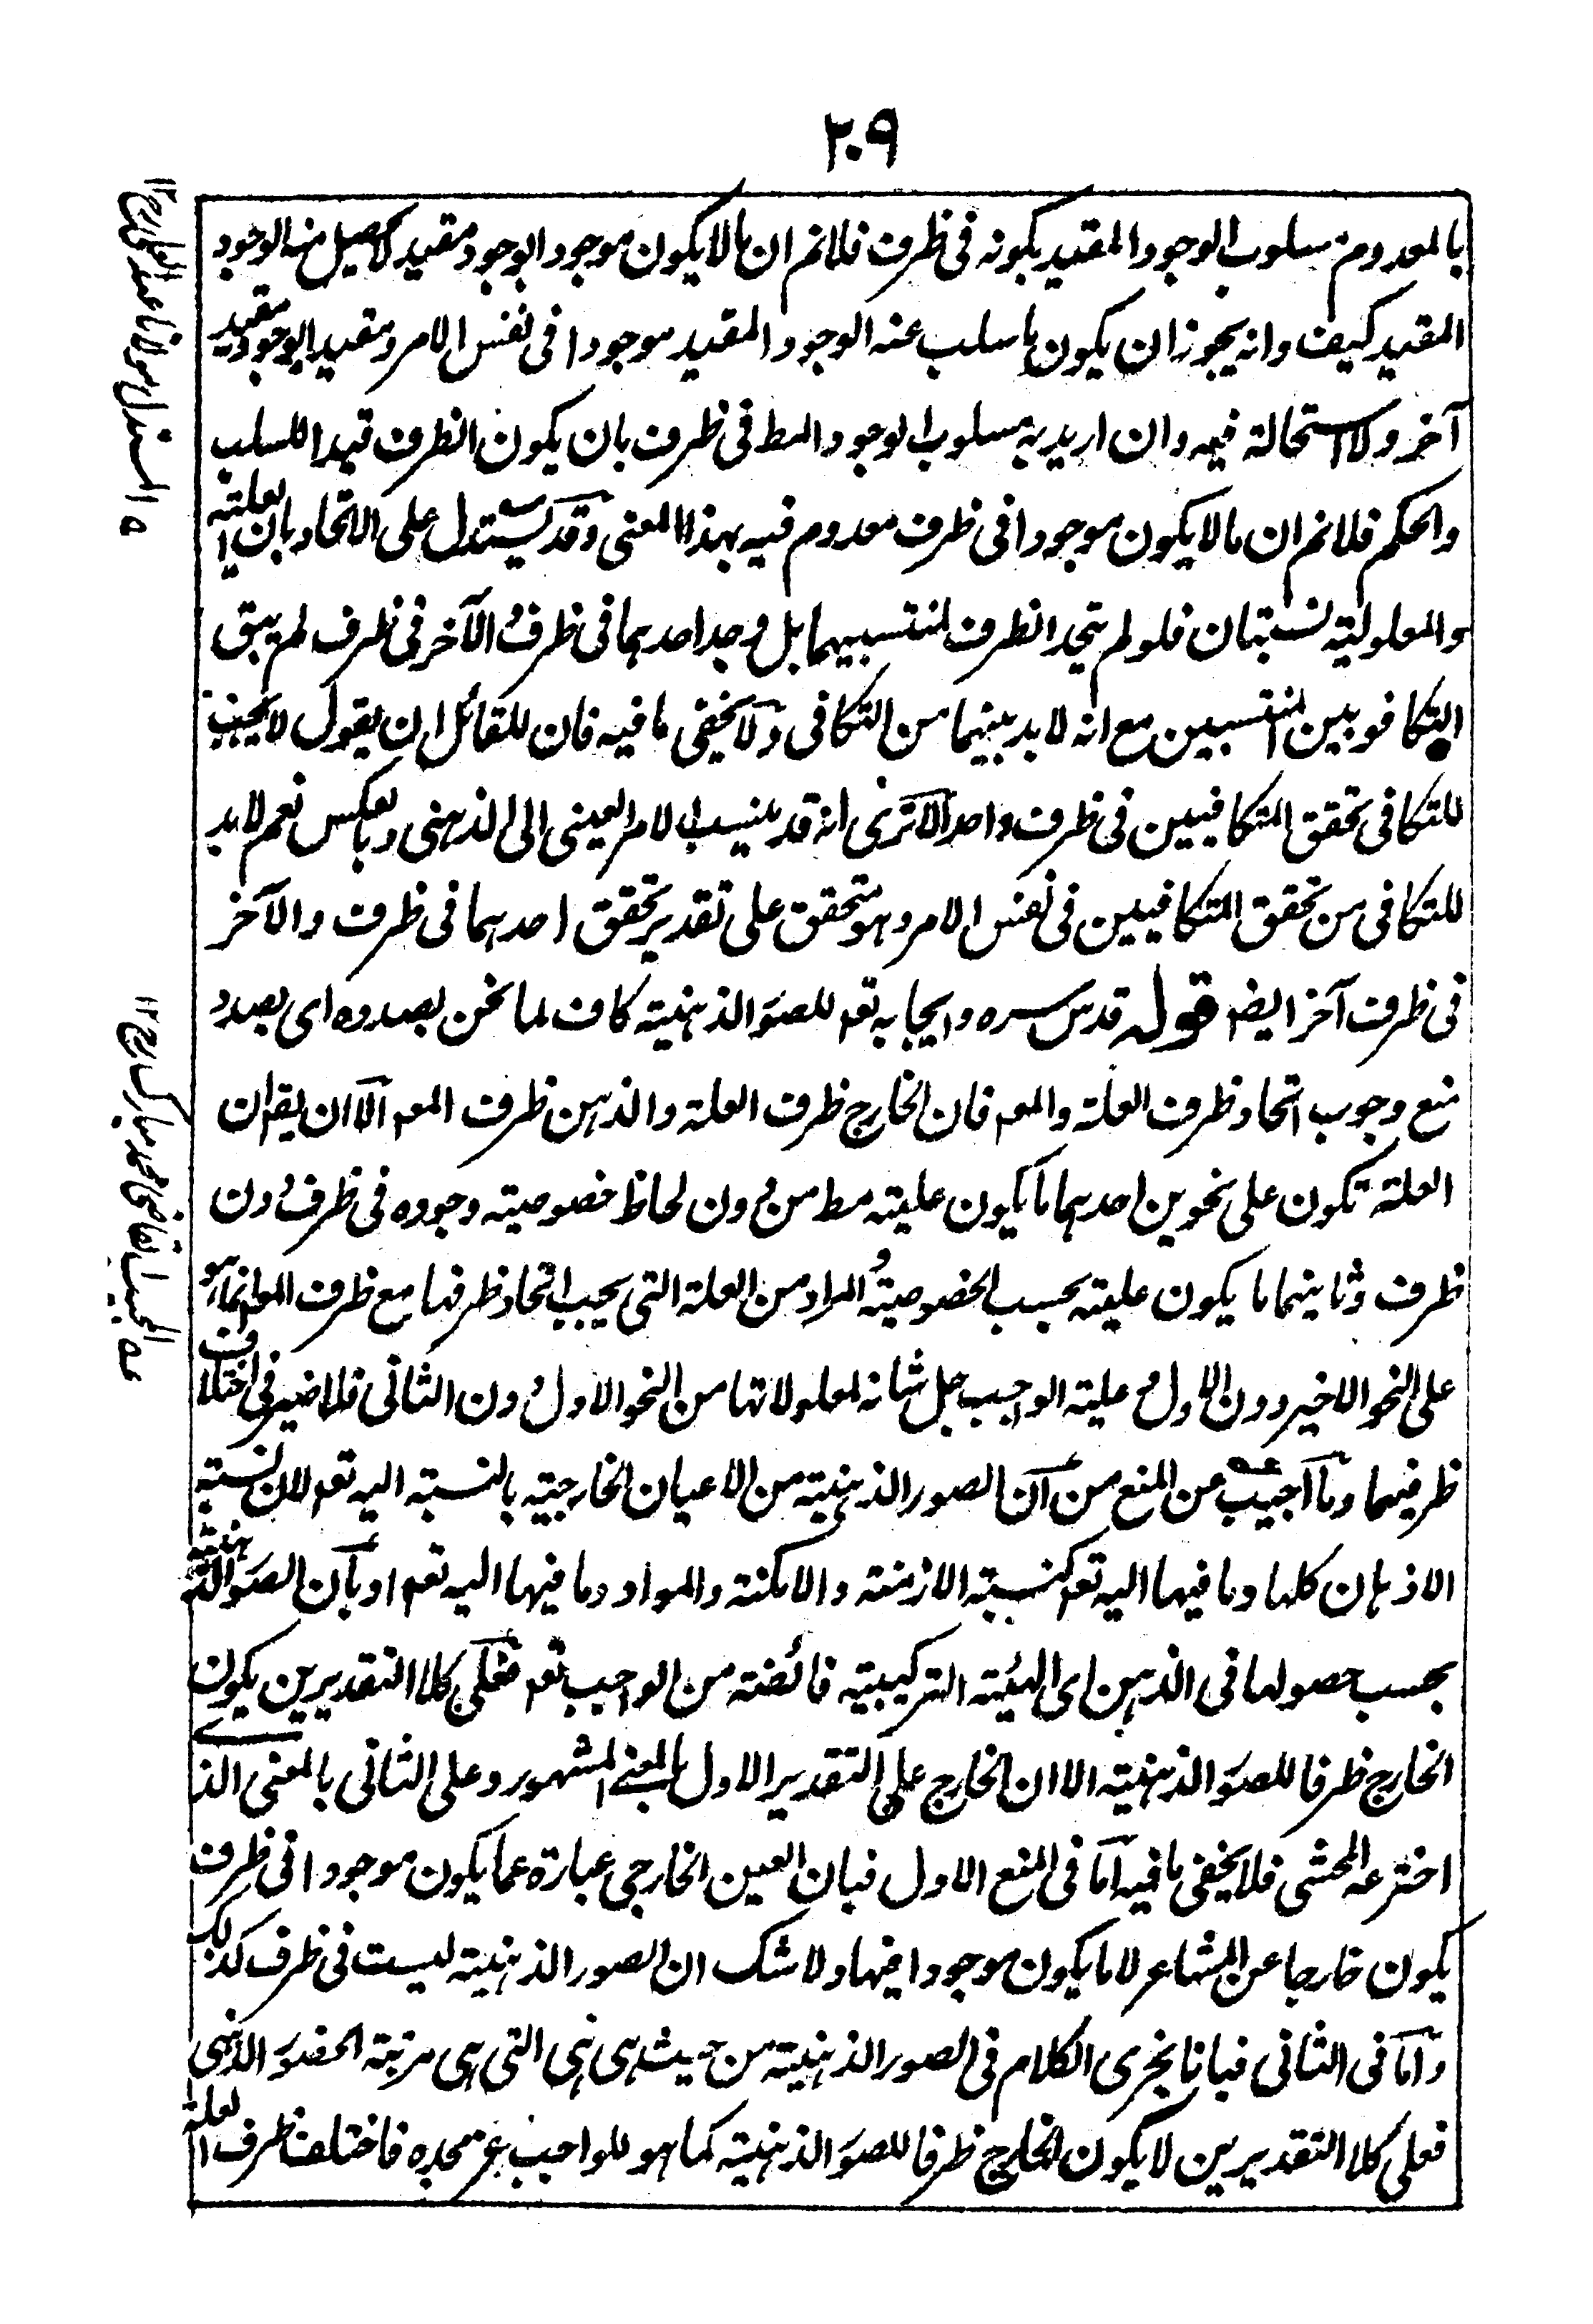 ٢٠٩
بالمعدوم مسلوب الوجود المقيد بكونه فى ظرف فلانم ان ما لا يكون موجودا بوجود مقيد كاصيل منه الوجود
المقيد كيف وانه يجوز ان يكون ما سلب عنه الوجود المقيد موجودا فى نفس الامر ومقيد ابوجود مقيد
آخر ولا استحالة فيه وان اريد به مسلوب الوجود المط فى ظرف بان يكون الظرف قيدا للسلب
والحكم فلانم ان ما لا يكون موجودا فى ظرف معدوم فيه بهذا المعنى وقد يستدل على الاتحاد بان العلية
والمعلولية نسبتان فلو لم يتحد الظرف لمنتسبيهما بل وجد احدهما فى ظرف والآخر فى ظرف لم يبق
التكافو بين المنتسبين مع انه لا بد بينهما من التكافى ولا يخفى ما فيه فان للقائل ان يقول لا يجب
للتكافى تحقق المتكافيين فى ظرف واحد الا ترى انه قد ينسب الامر العينى الى الذهنى وبالعكس نعم لا بد
للتكافى من تحقق المتكافيين فى نفس الامر وهو متحقق على تقدير تحقق احدهما فى ظرف والآخر
فى ظرف آخر ايضا قوله قدس سره وايجابه تعم للصور الذهنية كاف لما نحن بصدده اى بصدد
منع وجوب اتحاد ظرف العلة والمعم فان الخارج ظرف العلة والذهن ظرف المعم الا ان يقم ان
العلة تكون على نحوين احدهما ما يكون عليته مط من دون لحاظ خصوصية وجوده فى ظرف دون
ظرف وثانيهما ما يكون عليته بحسب الخصوصية والمراد من العلة التى يجب اتحاد ظرفها مع ظرف المعم انما هو
على النحو الاخير دون الاول وعلية الواجب جل شانه لمعلولاتها من النحو الاول دون الثانى فلا ضير فى اختلاف
ظرفيهما وما اجيب عن المنع من ان الصور الذهنية من الاعيان الخارجية بالنسبة اليه تعم لان نسبة
الاذهان كلها وما فيها اليه تعم كنسبة الازمنة والامكنة والمواد وما فيها اليه تعم او بان الصور الذهنية
بحسب حصولها فى الذهن اى الهيئة التركيبية فائضة من الواجب تعم فعلى كلا التقديرين يكون
الخارج ظرفا للصور الذهنية الا ان الخارج على التقدير الاول بالمعنى المشهور وعلى الثانى بالمعنى الذى
اخترعه المحشى فلا يخفى ما فيه اما فى المنع الاول فبان العين الخارجى عبارة عما يكون موجودا فى ظرف
يكون خارجا عن المشاعر لا ما يكون موجودا فيها ولا شك ان الصور الذهنية ليست فى ظرف كذلك
واما فى الثانى فبانا نجرى الكلام فى الصور الذهنية من حيث هى هى التى هى مرتبة الحضور الذهنى
فعلى كلا التقديرين لا يكون الخارج ظرفا للصور الذهنية كما هو للواجب عز مجده فاختلف ظرف العلة
المجيب القاضى محمد مبارك رح ١٢